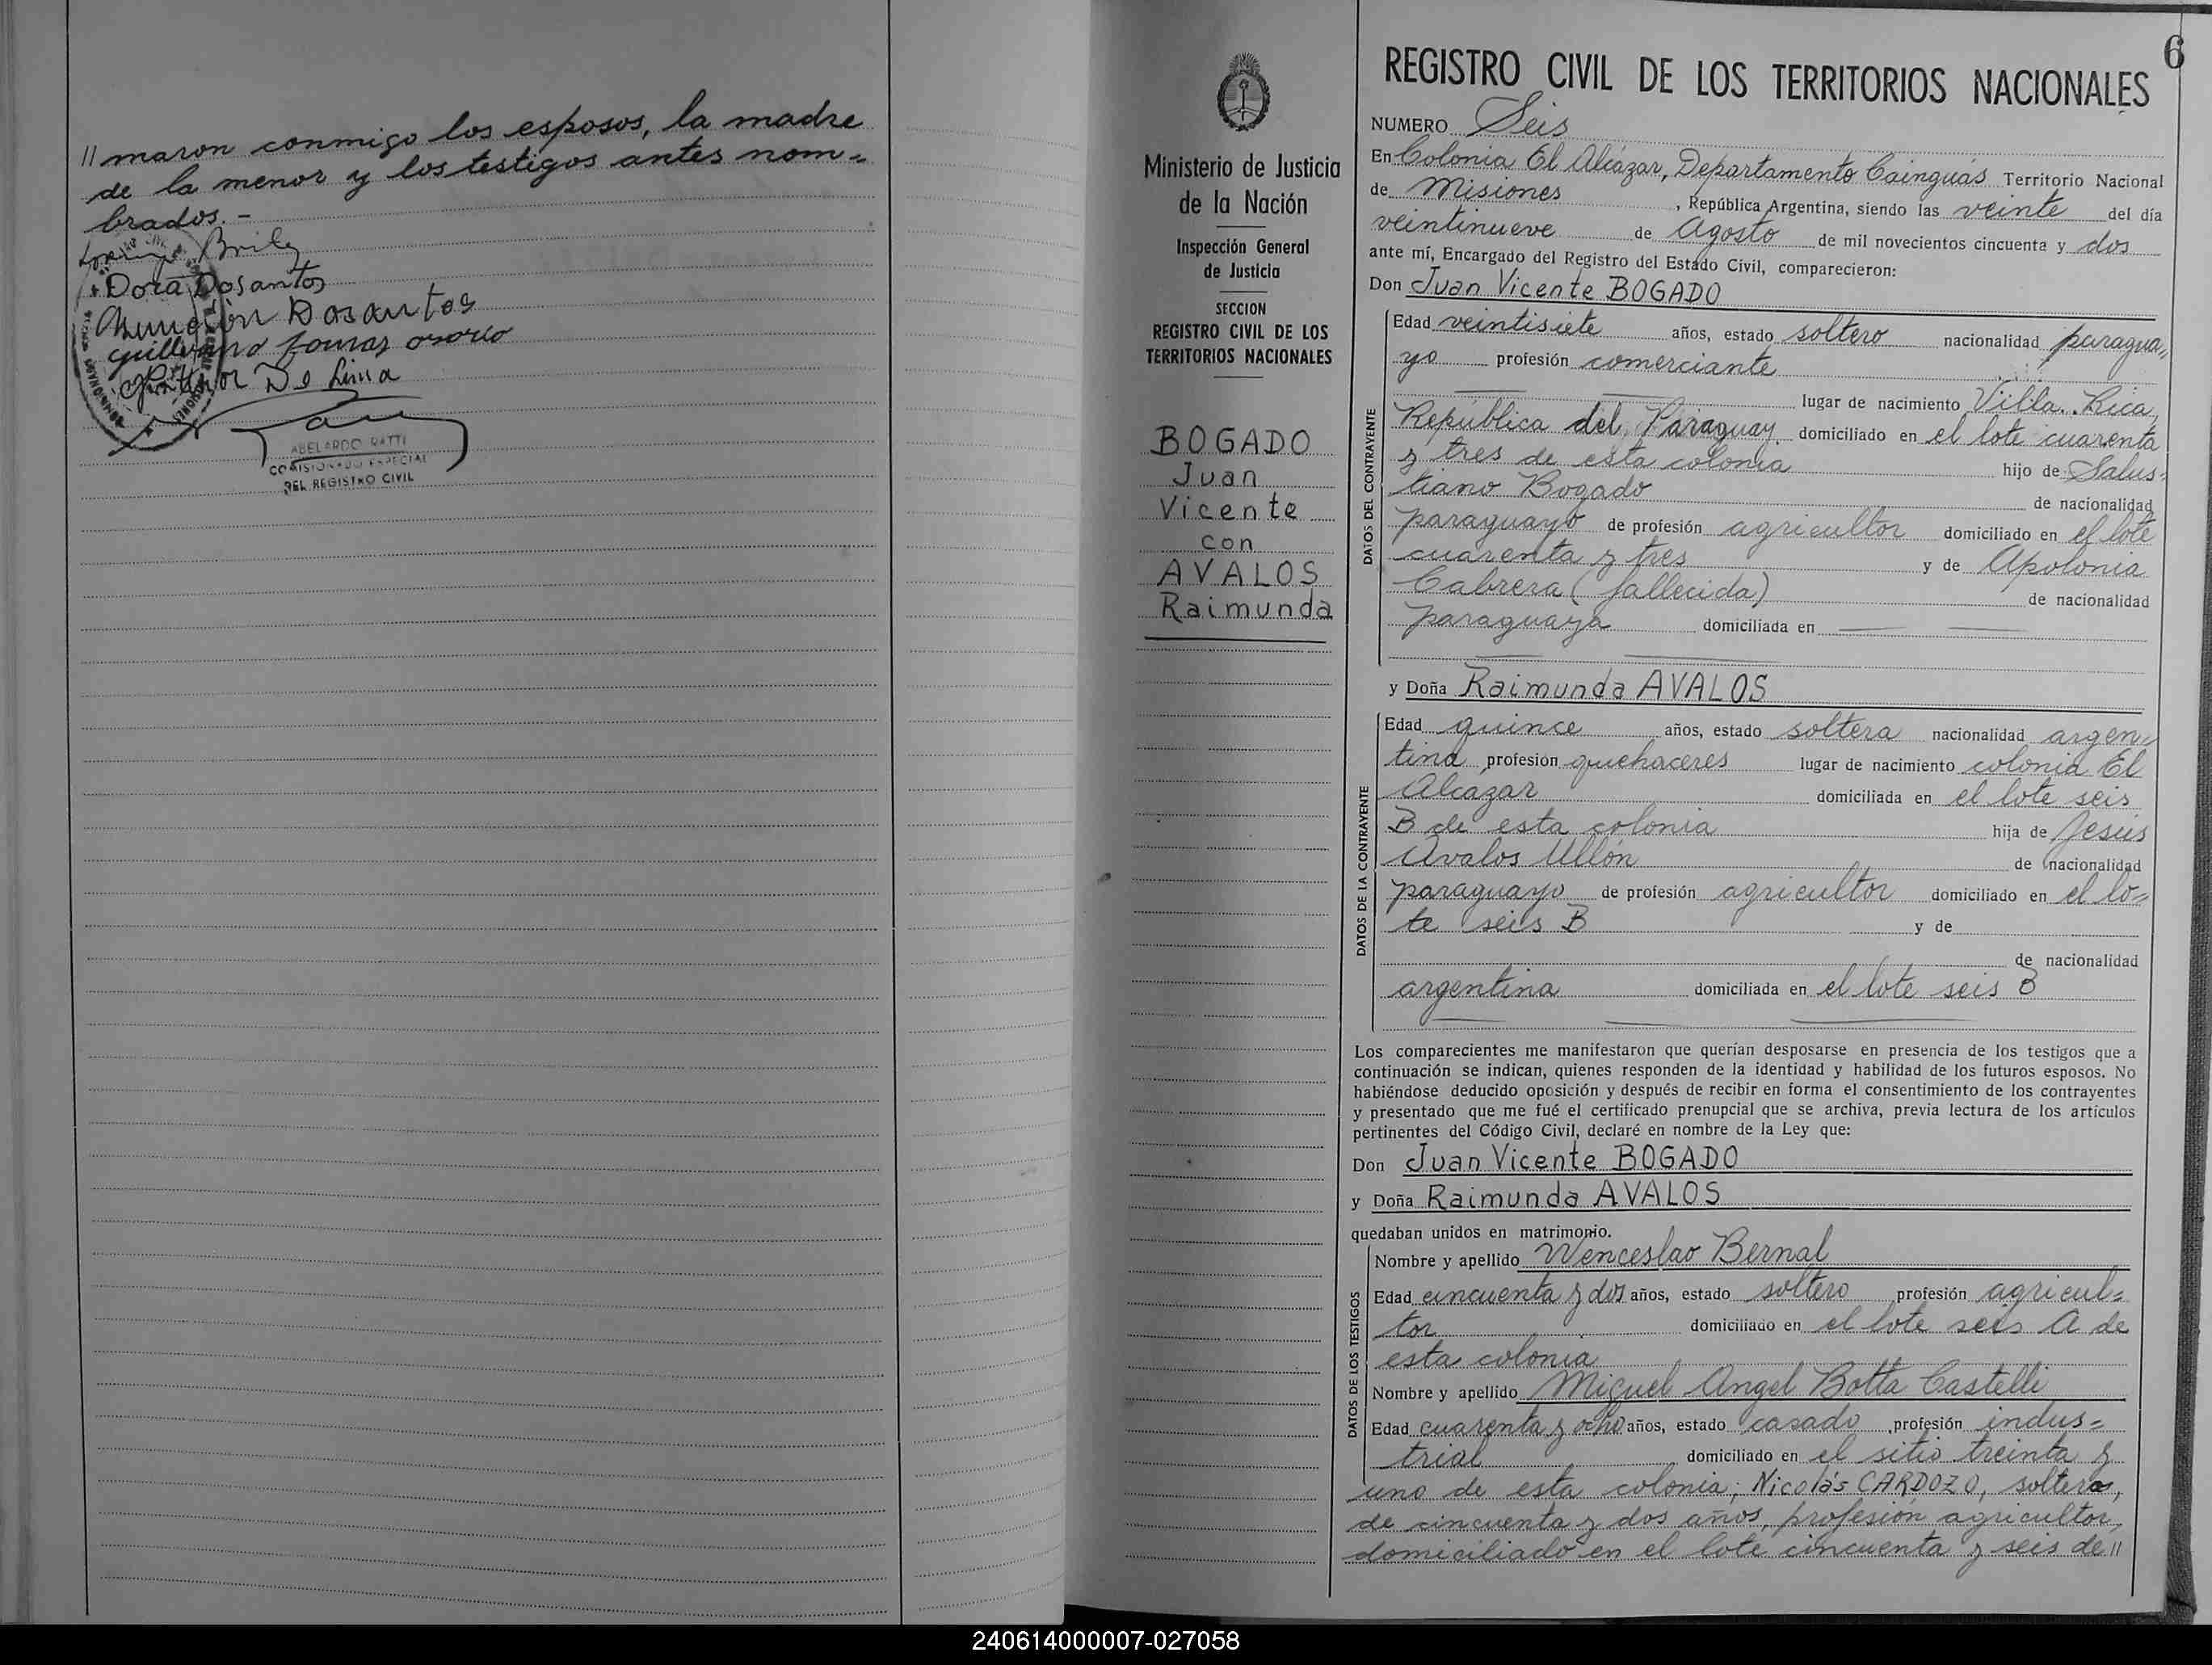 // maron conmigo los esposos, la madre
de la menor y los testigos antes nom=
brados.-
Brily
Dora Dosantos
Asunción Dosantos
De Lima
ABELARDO RATTI
COMISIONADO ESPECIAL
DEL REGISTRO CIVIL
Ministerio de Justicia
de la Nación
Inspección General
de Justicia
SECCION
REGISTRO CIVIL DE LOS
TERRITORIOS NACIONALES
BOGADO
Juan
Vicente
con
AVALOS
Raimunda
6
REGISTRO CIVIL DE LOS TERRITORIOS NACIONALES
NUMERO Seis
En Colonia El Alcázar, Departamento Cainguás Territorio Nacional
de Misiones, República Argentina, siendo las veinte del día
veintinueve de Agosto de mil novecientos cincuenta y dos
ante mí, Encargado del Registro del Estado Civil, comparecieron:
Don Juan Vicente BOGADO
DATOS DEL CONTRAYENTE
Edad veintisiete años, estado soltero nacionalidad paragua,,
yo profesión comerciante
lugar de nacimiento Villa Rica,
República del Paraguay domiciliado en el lote cuarenta
y tres de esta colonia hijo de Salus=
tiano Bogado de nacionalidad
paraguayo de profesión agricultor domiciliado en el lote
cuarenta y tres y de Apolonia
Cabrera (fallecida) de nacionalidad
paraguaya domiciliada en
y Doña Raimunda AVALOS
DATOS DE LA CONTRAYENTE
Edad quince años, estado soltera nacionalidad argen,,
tina profesión quehaceres lugar de nacimiento colonia El
Alcázar domiciliada en el lote seis
B de esta colonia hija de Jesús
Avalos Ullón de nacionalidad
paraguayo de profesión agricultor domiciliado en el lo=
te seis B y de
de nacionalidad
argentina domiciliada en el lote seis B
Los comparecientes me manifestaron que querían desposarse en presencia de los testigos que a
continuación se indican, quienes responden de la identidad y habilidad de los futuros esposos. No
habiéndose deducido oposición y después de recibir en forma el consentimiento de los contrayentes
y presentado que me fué el certificado prenupcial que se archiva, previa lectura de los artículos
pertinentes del Código Civil, declaré en nombre de la Ley que:
Don Juan Vicente BOGADO
y Doña Raimunda AVALOS
quedaban unidos en matrimonio.
DATOS DE LOS TESTIGOS
Nombre y apellido Wenceslao Bernal
Edad cincuenta y dos años, estado soltero profesión agricul=
tor domiciliado en el lote seis A de
esta colonia
Nombre y apellido Miguel Angel Botta Castelli
Edad cuarenta y ocho años, estado casado, profesión indus=
trial domiciliado en el sitio treinta y
uno de esta colonia; Nicolás CARDOZO, soltero,
de cincuenta y dos años, profesión agricultor,
domiciliado en el lote cincuenta y seis de //
240614000007-027058